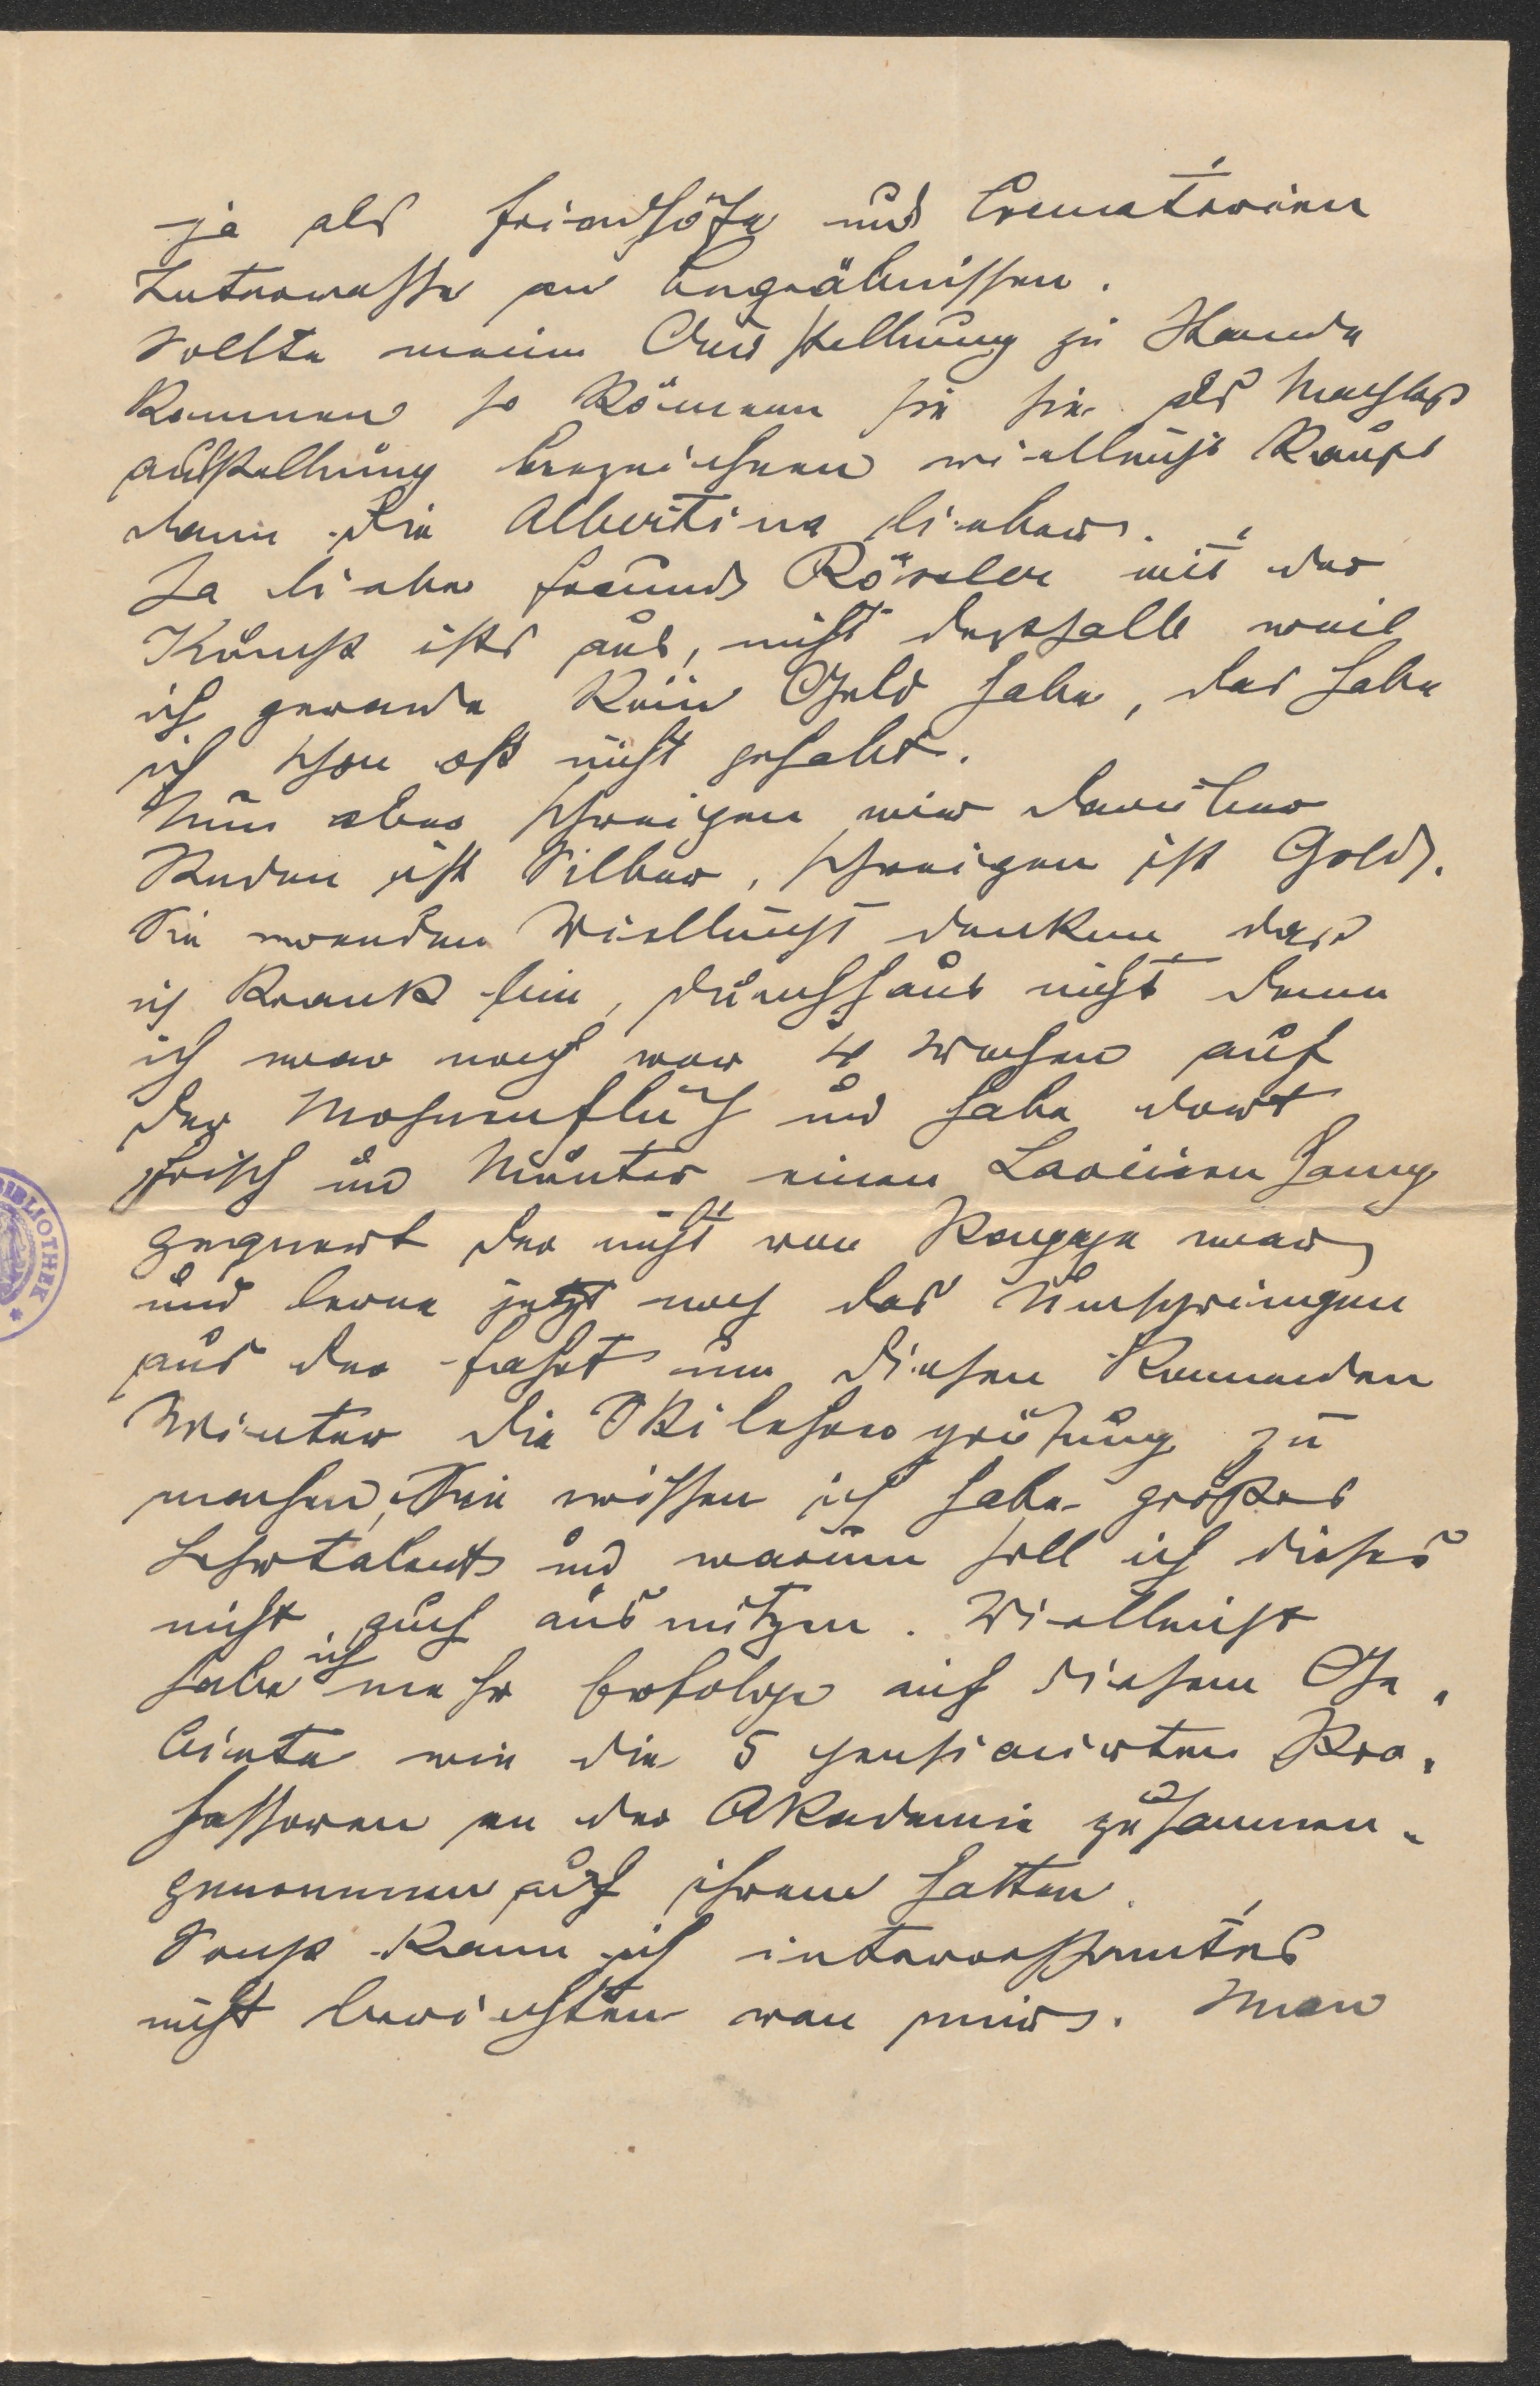 ja als Friedhöfe und Crematorien
Interresse an Begräbnissen.
Sollte meine Ausstellung zu Stande
kommen so können sie sie als Nachlass
ausstellung bezeichnen viellleicht kaufts
dann die Albertina lieber.
Ja lieber Freund Rössler mit der
Kunst ists aus, nicht desshalb weil
ich gerade kein Geld habe, das habe
ich schon oft nicht gehabt.
Nun aber schweigen wir darüber
Reden ist Silber, schweigen ist Gold.
Sie werden vielleicht denken dass
ich krank bin, durchaus nicht denn
ich war noch vor 4 Wochen auf
der Moserenfluh und habe dort
frisch und munter einen Lawinenhang
gequert der nicht von Pappe war
und lerne jetzt noch das Umspringen
aus der Fahrt um diesen kommenden
Winter die Skilehrerprüfung zu
machen, Sie wissen ich habe großes
Lehrtalent und warum soll ich dieses
nicht auch ausnützen. Vielleicht
habe ich mehr Erfolge auf diesem Ge-
biete wie die 5 pensionirten Pro-
fessoren an der Akademie zusammen-
genommen auf ihrem hatten.
Sonst kann ich interressantes
nicht berichten von mir. Man
BIBLIOTHEK